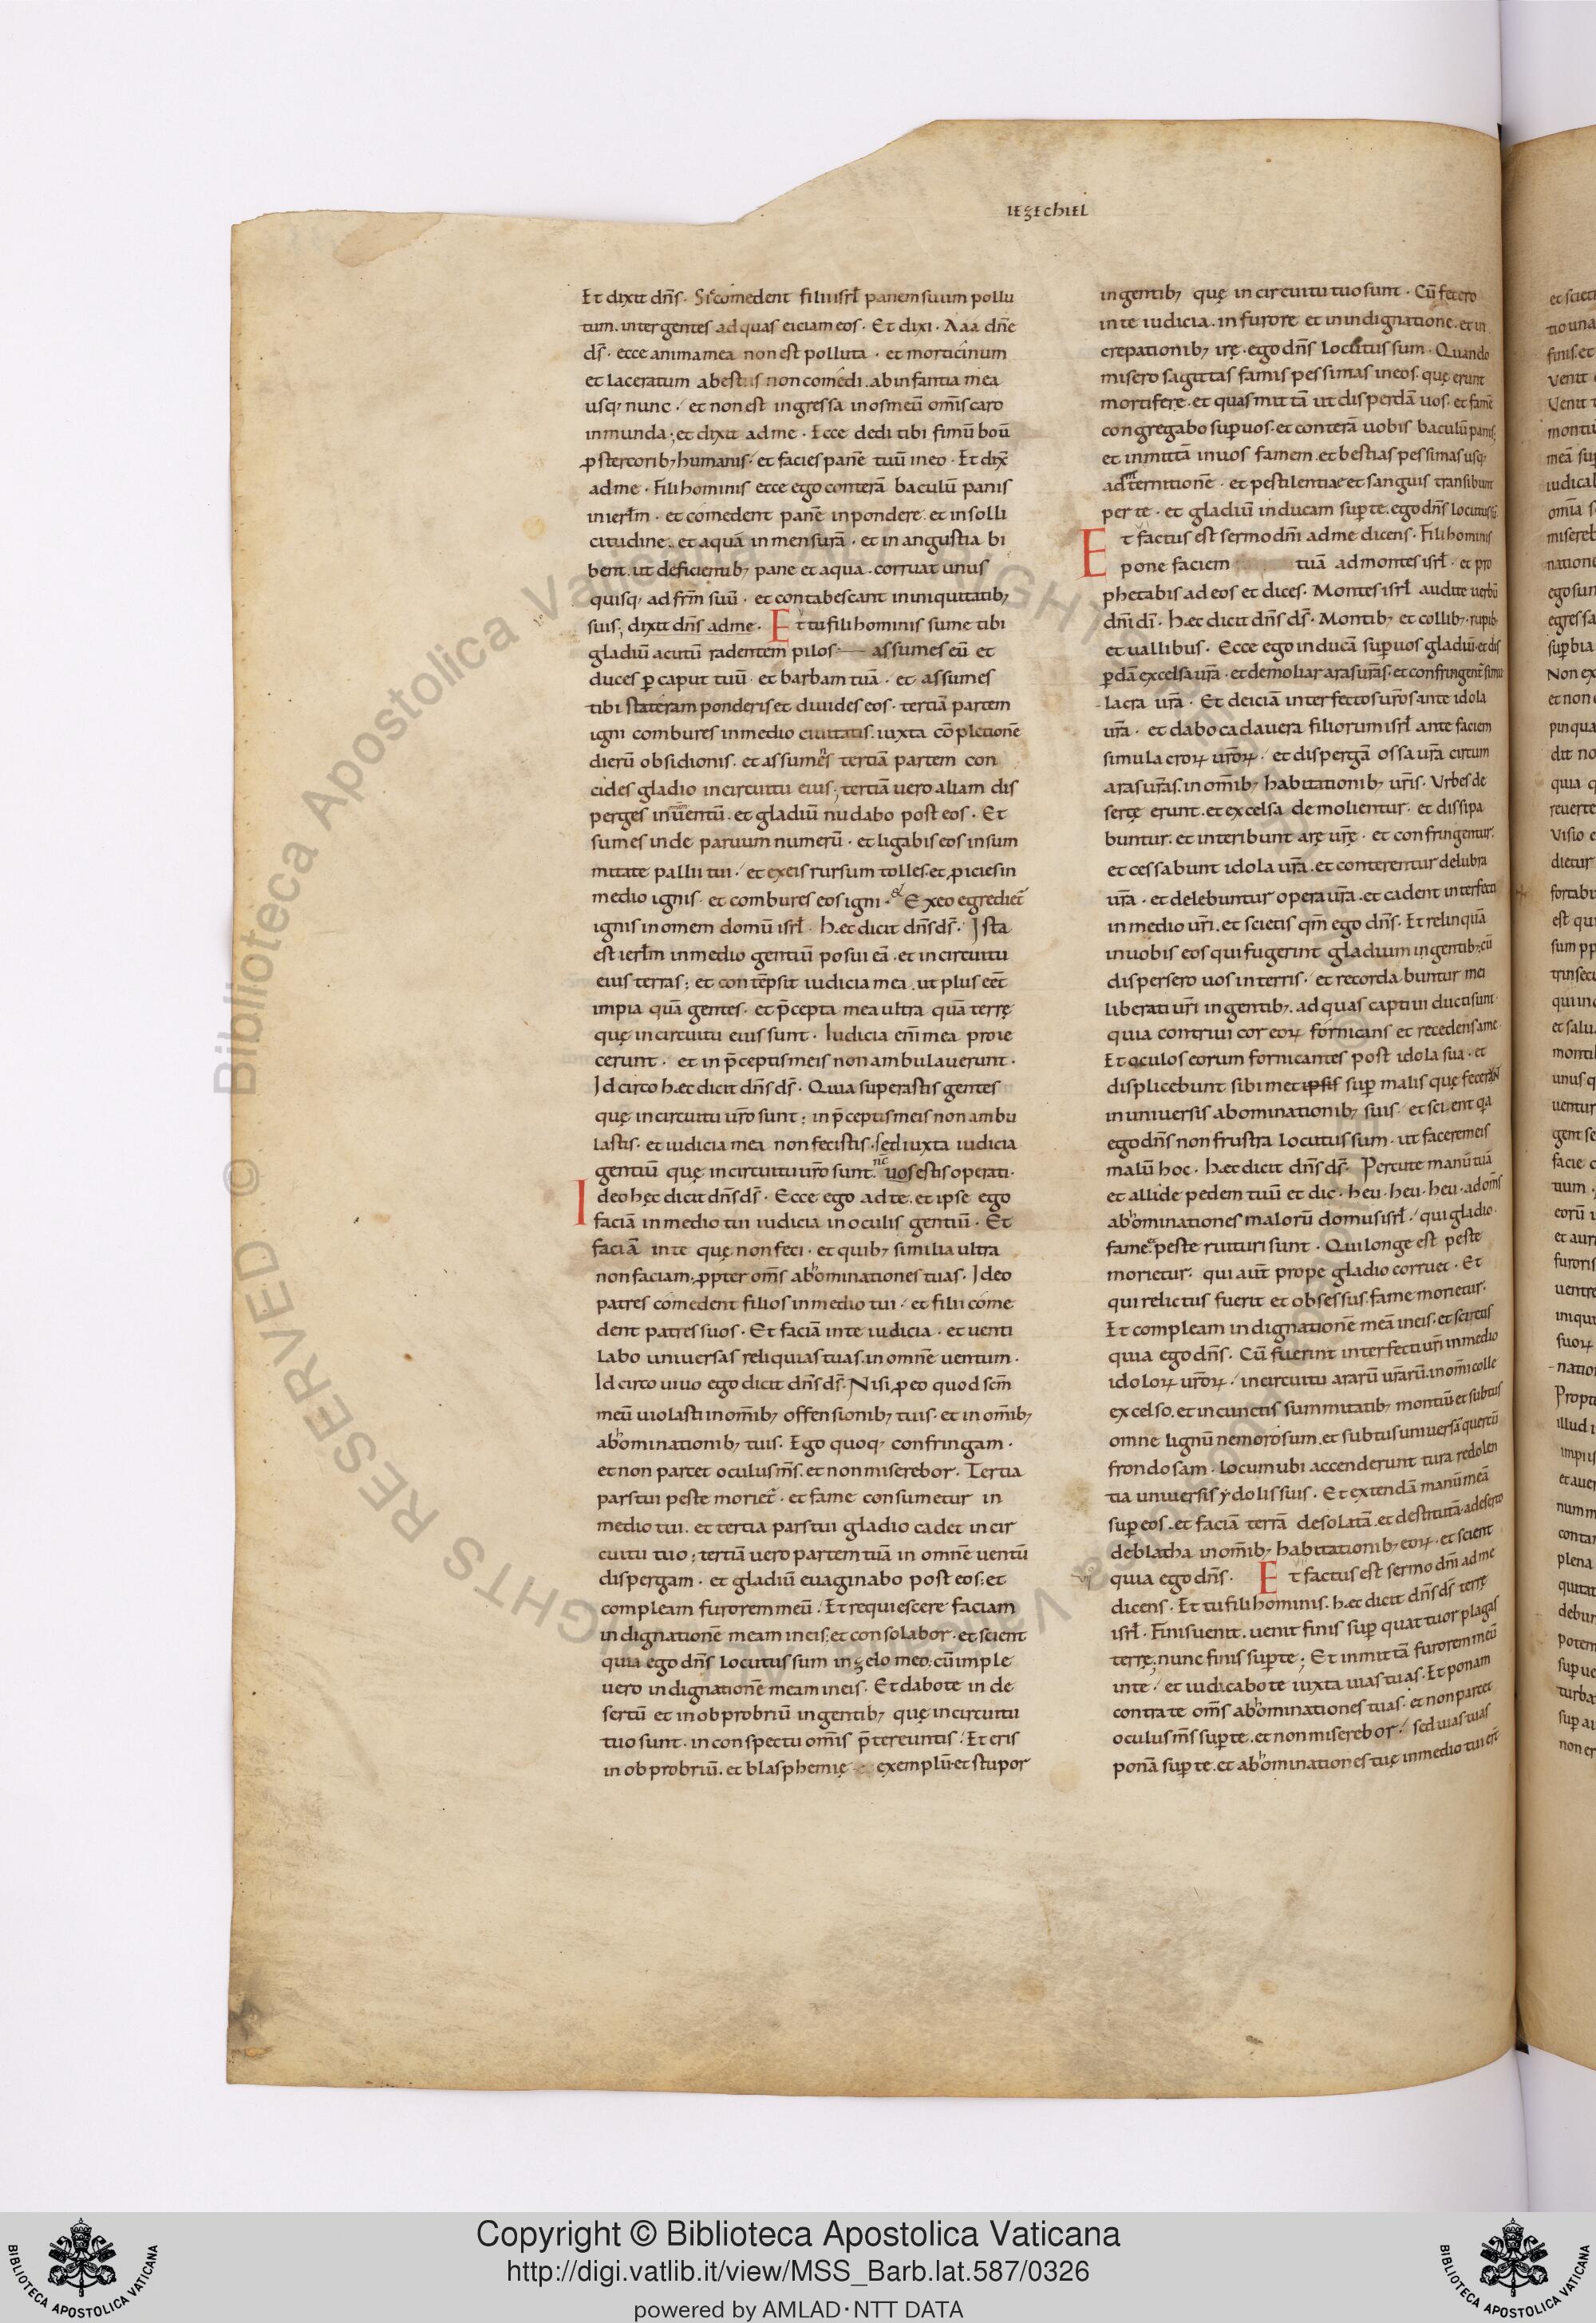 IEZEChIEL
Et dixit dn̄s · Sic comedent filii isrl̄ panem suum pollu
tum. inter gentes ad quas eiciam eos · Et dixi · Aaa dn̄e
ds̄ · ecce anima mea non est polluta · et morticinum
et laceratum a bestiis non comedi. ab infantia mea
usq; nunc · et non est ingressa in os meū om̄is caro
inmunda; et dixit ad me · Ecce dedi tibi fimū boū
p stercorib; humanis · et facies panē tuū in eo · Et dix̄
ad me · Fili hominis ecce ego conterā baculū panis
in ierl̄m · et comedent panē in pondere. et in solli
citudine. et aquā in mensurā · et in angustia bi
bent. ut deficientib; pane et aqua. corruat unus
quisq; ad fr̄m suū · et contabescant in iniquitatib;
suis; dixit dn̄s ad me · Et tu fili hominis sume tibi
gladiū acutū radentem pilos — assumes eū et
duces p̱ caput tuū · et barbam tuā · et assumes
tibi stateram ponderis et diuides eos · tertiā partem
igni combures in medio ciuitatis. iuxta cōpletionē
dierū obsidionis. et assumens tertiā partem con
cides gladio in circuitu eius; tertiā uero aliam dis
perges in uentū. et gladiū nudabo post eos · Et
sumes inde paruum numerū · et ligabis eos in sum
mitate pallii tui · et ex eis rursum tolles. et p̱icies in
medio ignis · et combures eos igni · & Ex eo egrediet᷑
ignis in omem domū isrl̄ · Hæc dicit dn̄s ds̄ · Ista
est ierl̄m in medio gentiū posui eā · et in circuitu
eius terras; et contēpsit iudicia mea. ut plus eēt
impia quā gentes · et p̄cepta mea ultra quā terrę
quę in circuitu eius sunt · Iudicia eni̅ mea proie
cerunt · et in p̄ceptis meis non ambulauerunt ·
Idcirco hæc dicit dn̄s ds̄ · Quia superastis gentes
quę in circuitu ur̄o sunt; in p̄ceptis meis non ambu
lastis · et iudicia mea non fecistis · sed iuxta iudicia
gentiū quę in circuitu ur̄o sunt. nc̄ uos estis operati ·
Ideo hęc dicit dn̄s ds̄ · Ecce ego ad te. et ipse ego
faciā in medio tui iudicia in oculis gentiū · Et
faciā in te quę non feci · et quib; similia ultra
non faciam; p̱pter om̄s abhominationes tuas · Ideo
patres comedent filios in medio tui · et filii come
dent patres suos · Et faciā in te iudicia · et uenti
labo uniuersas reliquias tuas. in omnē uentum ·
Idcirco uiuo ego dicit dn̄s ds̄ · Nisi p̱ eo quod sc̄m
meū uiolasti in om̄ib; offensionib; tuis · et in om̄ib;
abhominationib; tuis · Ego quoq; confringam ·
et non parcet oculus m̄s. et non miserebor · Tertia
pars tui peste moriet᷑ · et fame consumetur in
medio tui. et tertia pars tui gladio cadet in cir
cuitu tuo; tertiā uero partem tuā in omnē uentū
dispergam · et gladiū euaginabo post eos; et
compleam furorem meū · Et requiescere faciam
indignationē meam in eis; et consolabor · et scient
quia ego dn̄s locutus sum in zelo meo; cū imple
uero indignationē meam in eis · Et dabo te in de
sertū et in obprobriū in gentib; quę in circuitu
tuo sunt · in conspectu om̄is p̄tereuntis · Et eris
in obprobriū. et blasphemię exemplū. et stupor
in gentib; quę in circuitu tuo sunt · Cū fecero
in te iudicia. in furore et in indignatione. et in
crepationib; irę · ego dn̄s locutus sum · Quando
misero sagittas famis pessimas in eos. quę erunt
mortiferę. et quas mittā ut disperdā uos · et famē
congregabo sup̱ uos. et conterā uobis baculū panis;
et inmittā in uos famem. et bestias pessimas usq;
ad internitionē · et pestilentia et sanguis transibunt
per te · et gladiū inducam sup̱ te. ego dn̄s locutus sū
Et factus est sermo dn̄i ad me dicens · Fili hominis
pone faciem tuā ad montes isrl̄ · et pro
phetabis ad eos et dices · Montes isrl̄ audite uerbū
dn̄i dī · Hæc dicit dn̄s ds̄ · Montib; et collib; · rupib;
et uallibus · Ecce ego inducā sup̱ uos gladiū · et dis
p̱dā excelsa ur̄a · et demoliar aras ur̄as · et confringent᷑ simu
lacra ur̄a · Et deiciā interfectos ur̄os ante idola
ur̄a · et dabo cadauera filiorum isrl̄ ante faciem
simulacroꝝ ur̄oꝝ · et dispergā ossa ur̄a circum
aras ur̄as. in om̄ib; habitationib; ur̄is · Vrbes de
sertę erunt. et excelsa demolientur · et dissipa
buntur. et interibunt arę ur̄ę · et confringentur.
et cessabunt idola ur̄a. et conterentur delubra
ur̄a · et delebuntur opera ur̄a. et cadent interfecti
in medio ur̄i. et scietis qm̄ ego dn̄s · Et relinquā
in uobis eos qui fugerint gladium in gentib; cū
dispersero uos in terris · et recordabuntur mei
liberati ur̄i in gentib;. ad quas captiui ducti sunt ·
quia contriui cor eoꝝ fornicans et recedens a me ·
Et oculos eorum fornicantes post idola sua · et
displicebunt sibimet ipsis sup̱ malis quę fecerunt
in uniuersis abominationib; suis · et scient qa
ego dn̄s non frustra locutus sum · ut facerem eis
malū hoc · Hæc dicit dn̄s ds̄ · Percute manū tuā
et allide pedem tuū et dic · heu · heu · heu · ad om̄s
abhominationes malorū domus isrl̄ · qui gladio ·
fame et peste ruituri sunt · Qui longe est peste
morietur · qui aut̄ prope gladio corruet · Et
qui relictus fuerit et obsessus. fame morietur.
Et compleam indignationē meā in eis · et scietis
quia ego dn̄s · Cū fuerint interfecti ur̄i in medio
idoloꝝ ur̄oꝝ · in circuitu ararū ur̄arū. in om̄i colle
excelso. et in cunctis summitatib; montiū et subtus
omne lignū nemorosum. et subtus uniuersā quercū
frondosam · locum ubi accenderunt tura redolen
tia uniuersis ydolis suis · Et extendā manū meā
sup̱ eos. et faciā terrā desolatā. et destitutā. a deserto
deblatha in om̄ib; habitationib; eoꝝ · et scient
quia ego dn̄s · Et factus est sermo dn̄i ad me
dicens · Et tu fili hominis · hæc dicit dn̄s ds̄ terrę
isrl̄ · Finis uenit. uenit finis sup̱ quattuor plagas
terrę; nunc finis sup̱ te; Et inmittā furorem meū
in te · et iudicabo te iuxta uias tuas · Et ponam
contra te om̄s abhominationes tuas · et non parcet
oculus m̄s sup̱ te. et non miserebor · sed uias tuas
ponā sup̱ te. et abhominationes tuę in medio tui er̄t
Copyright © Biblioteca Apostolica Vaticana
http://digi.vatlib.it/view/MSS_Barb.lat.587/0326
powered by AMLAD·NTT DATA